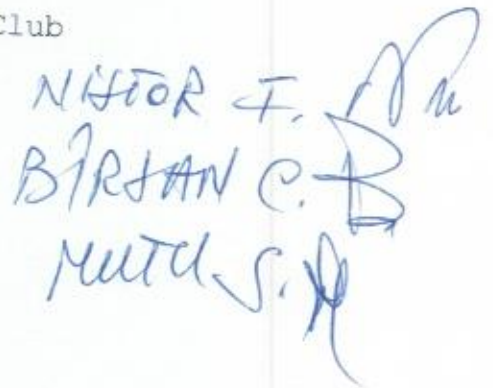 Club
NISTOR I.
BÎRSAN C.
MUTU S.